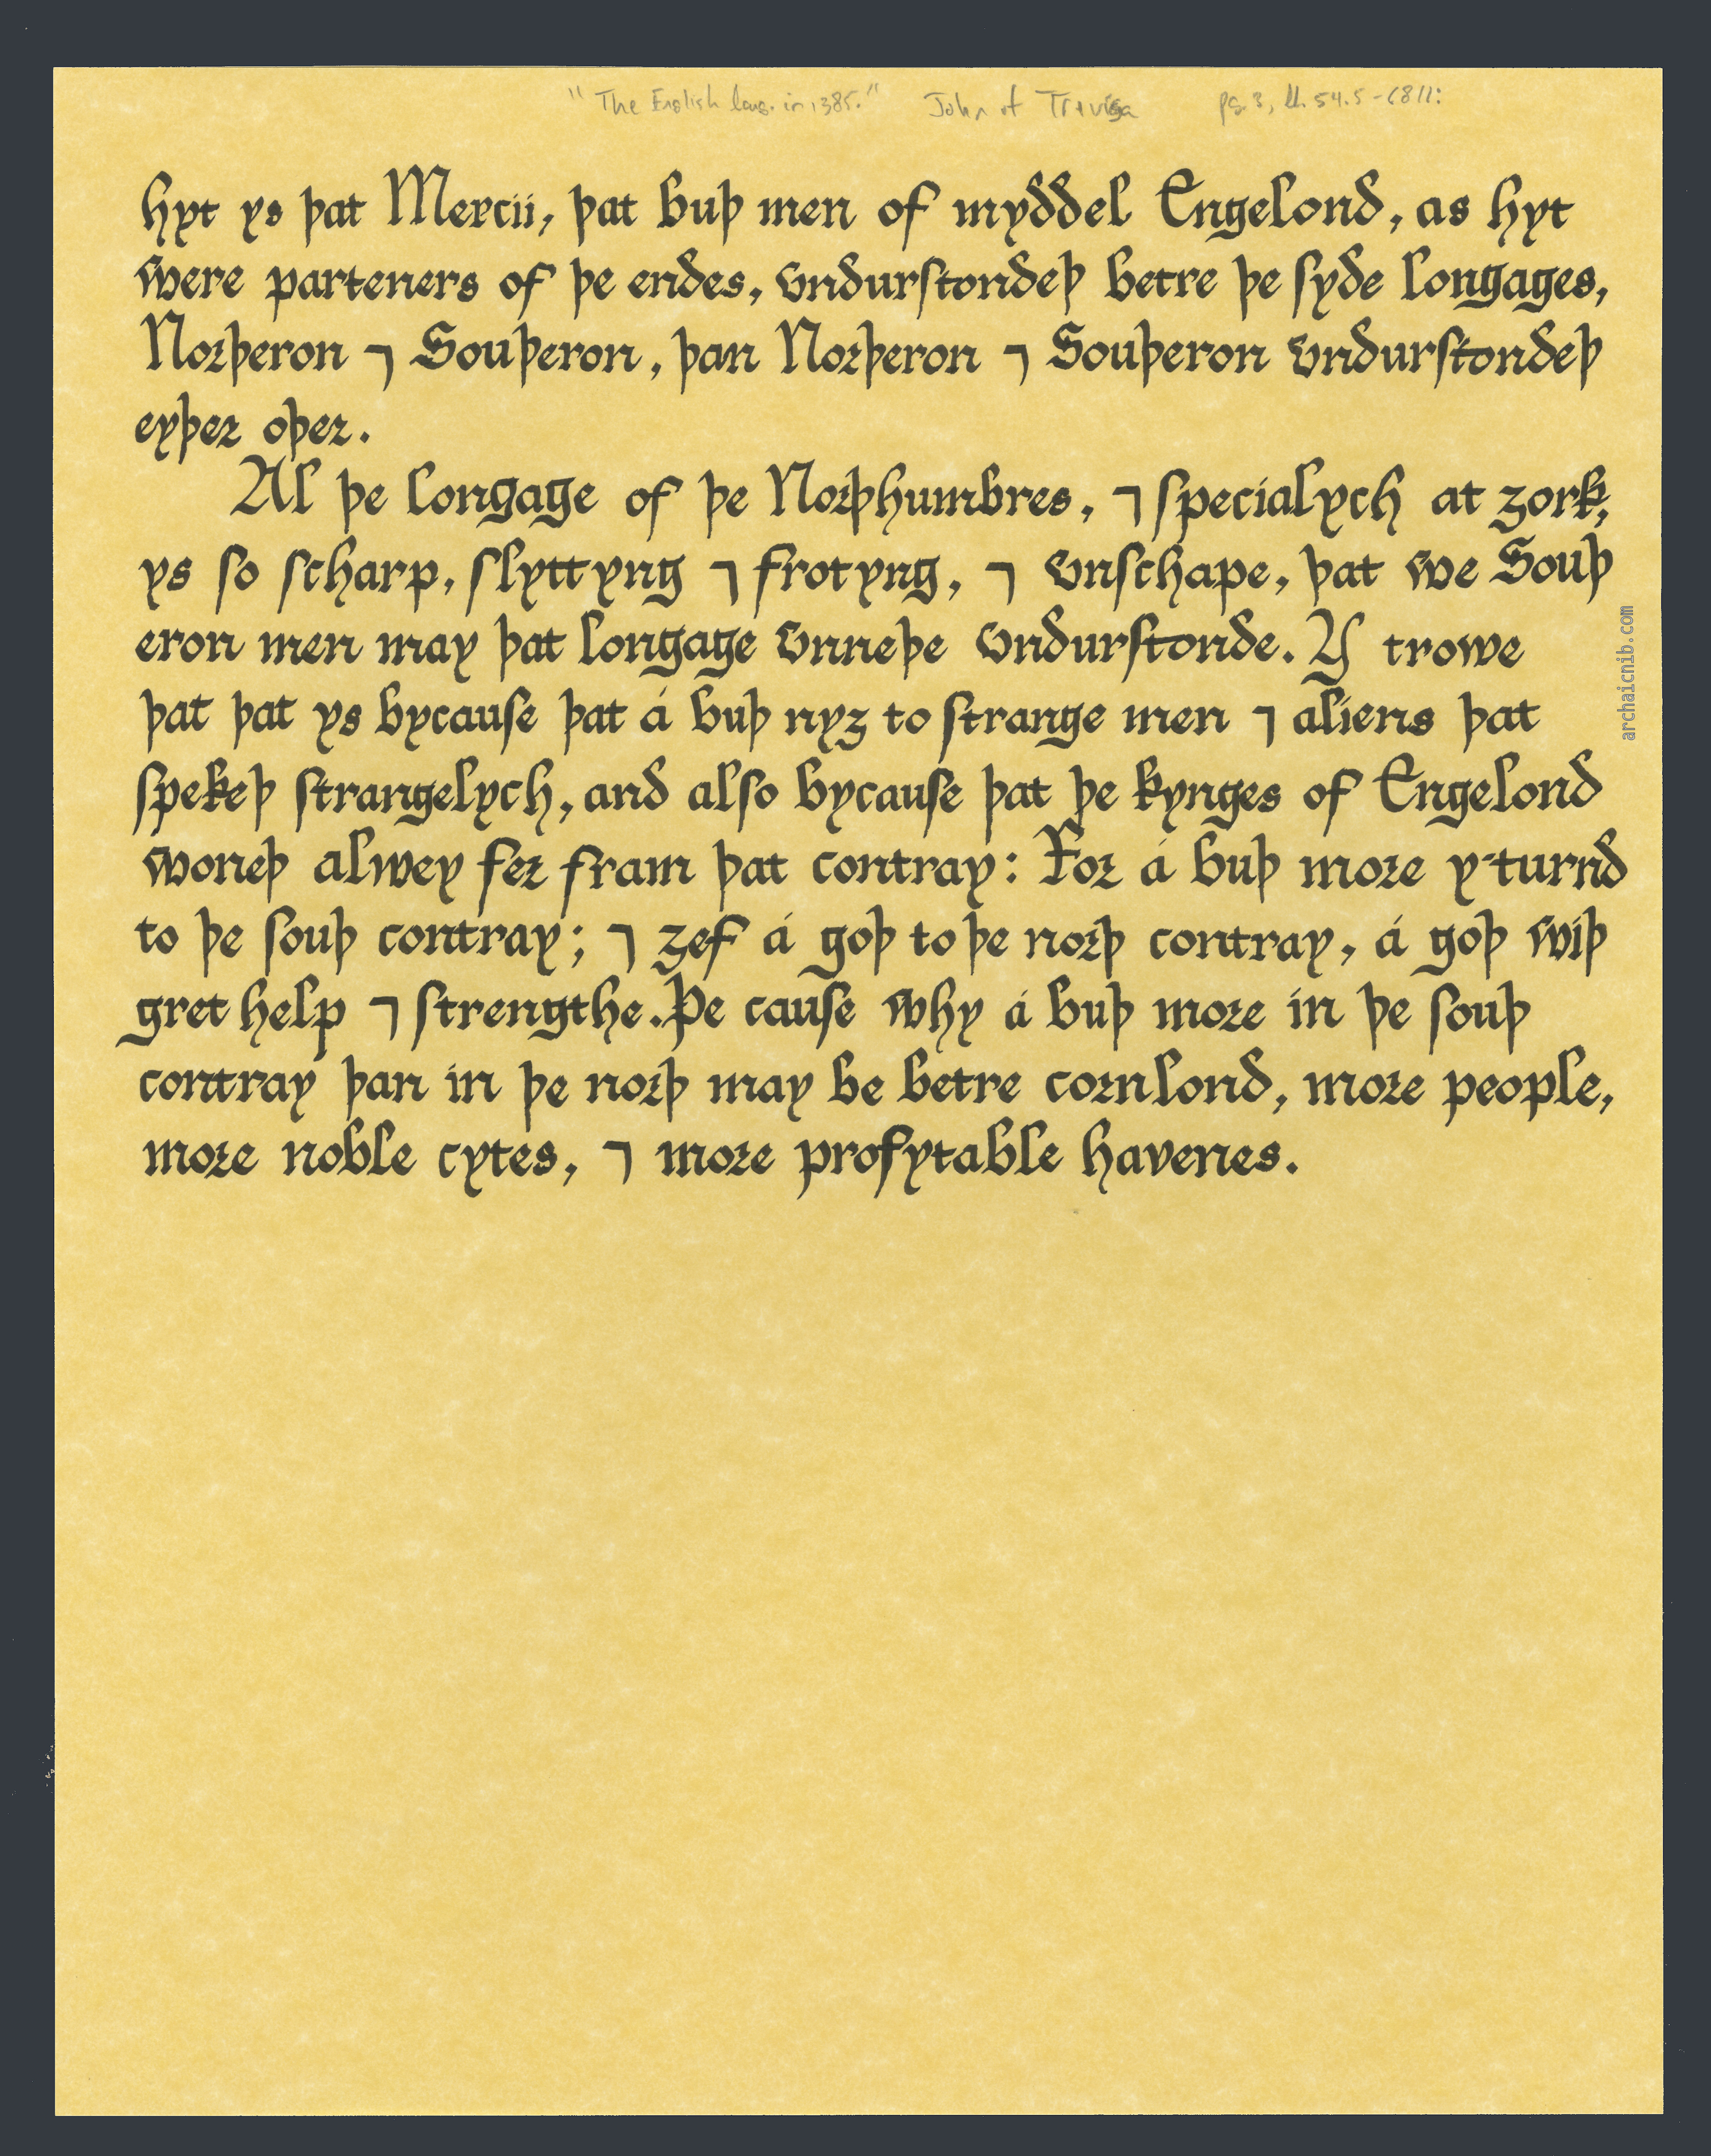 "The English lang. in 1385." John of Trevisa pg. 3, ll. 54.5-68 ll:
hyt ys þat Mercii, þat buþ men of myddel Engelond, as hyt
were parteners of þe endes, vndurſtondeþ betre þe ſyde longages,
Norþeron ⁊ Souþeron, þan Norþeron ⁊ Souþeron vndurſtondeþ
eyþer oþer.
Al þe longage of þe Norþhumbres, ⁊ specialych at ȝork,
ys ſo ſcharp, ſlyttyng ⁊ frotyng, ⁊ vnſchape, þat we Souþ
eron men may þat longage vnneþe vndurſtonde. Y trowe
þat þat ys bycauſe þat á buþ nyȝ to ſtrange men ⁊ aliens þat
ſpekeþ ſtrangelych, and alſo bycauſe þat þe kynges of Engelond
woneþ alwey fer fram þat contray: For á buþ more y-turnd
to þe ſouþ contray; ⁊ ȝef á goþ to þe norþ contray, á goþ wiþ
gret help ⁊ ſtrengthe. Þe cauſe why á buþ more in þe ſouþ
contray þan in þe norþ may be betre cornlond, more people,
more noble cytes, ⁊ more profytable havenes.
archaicnib.com